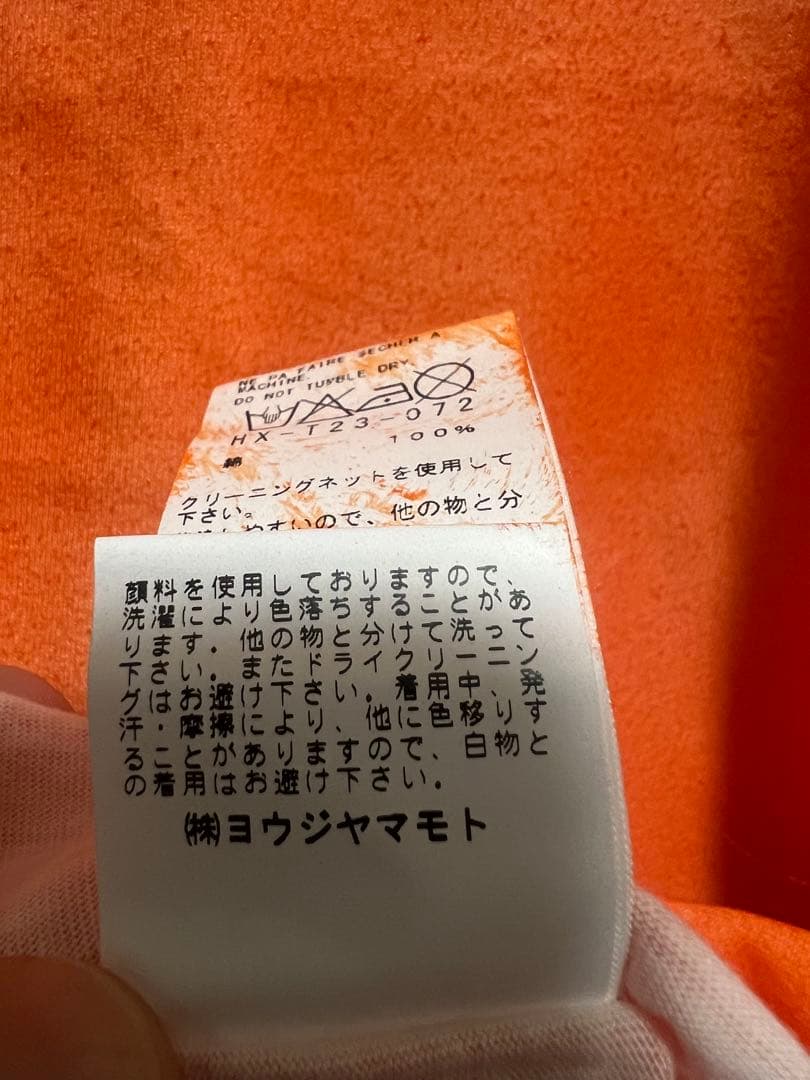 NE PA FAIRE SECHER A
MACHINE.
DO NOT TUMBLE DRY.
HX-T23-072
綿 100%
クリーニングネットを使用して
下さい。
やすいので、他の物と分
顔料を使用しておりますので、
洗濯により色落ちすることがあ
ります．他の物と分けて洗って
下さい．またドライクリーニン
グはお避け下さい．着用中、発
汗・摩擦により、他に色移りす
ることがありますので、白物と
の着用はお避け下さい．
㈱ヨウジヤマモト